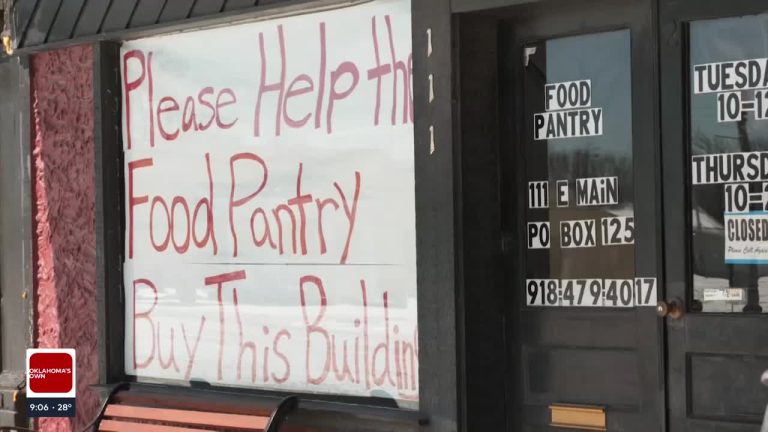 Please Help the
Food Pantry
Buy This Building
111
FOOD
PANTRY
111 E MAIN
PO BOX 125
918-479-4017
TUESDA
10=12
THURSD
10=2
CLOSED
Please Call Again
OKLAHOMA'S
OWN
9:06 28°